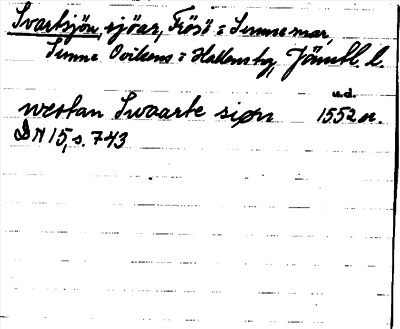 Svartsjön, sjöar, Frösö o Sunne mar,
Sunne, Ovikens o Hallens tg, Jämtl. l.
u.d.
westan Swaarte siøn 1552 n.
DN 15, s. 743